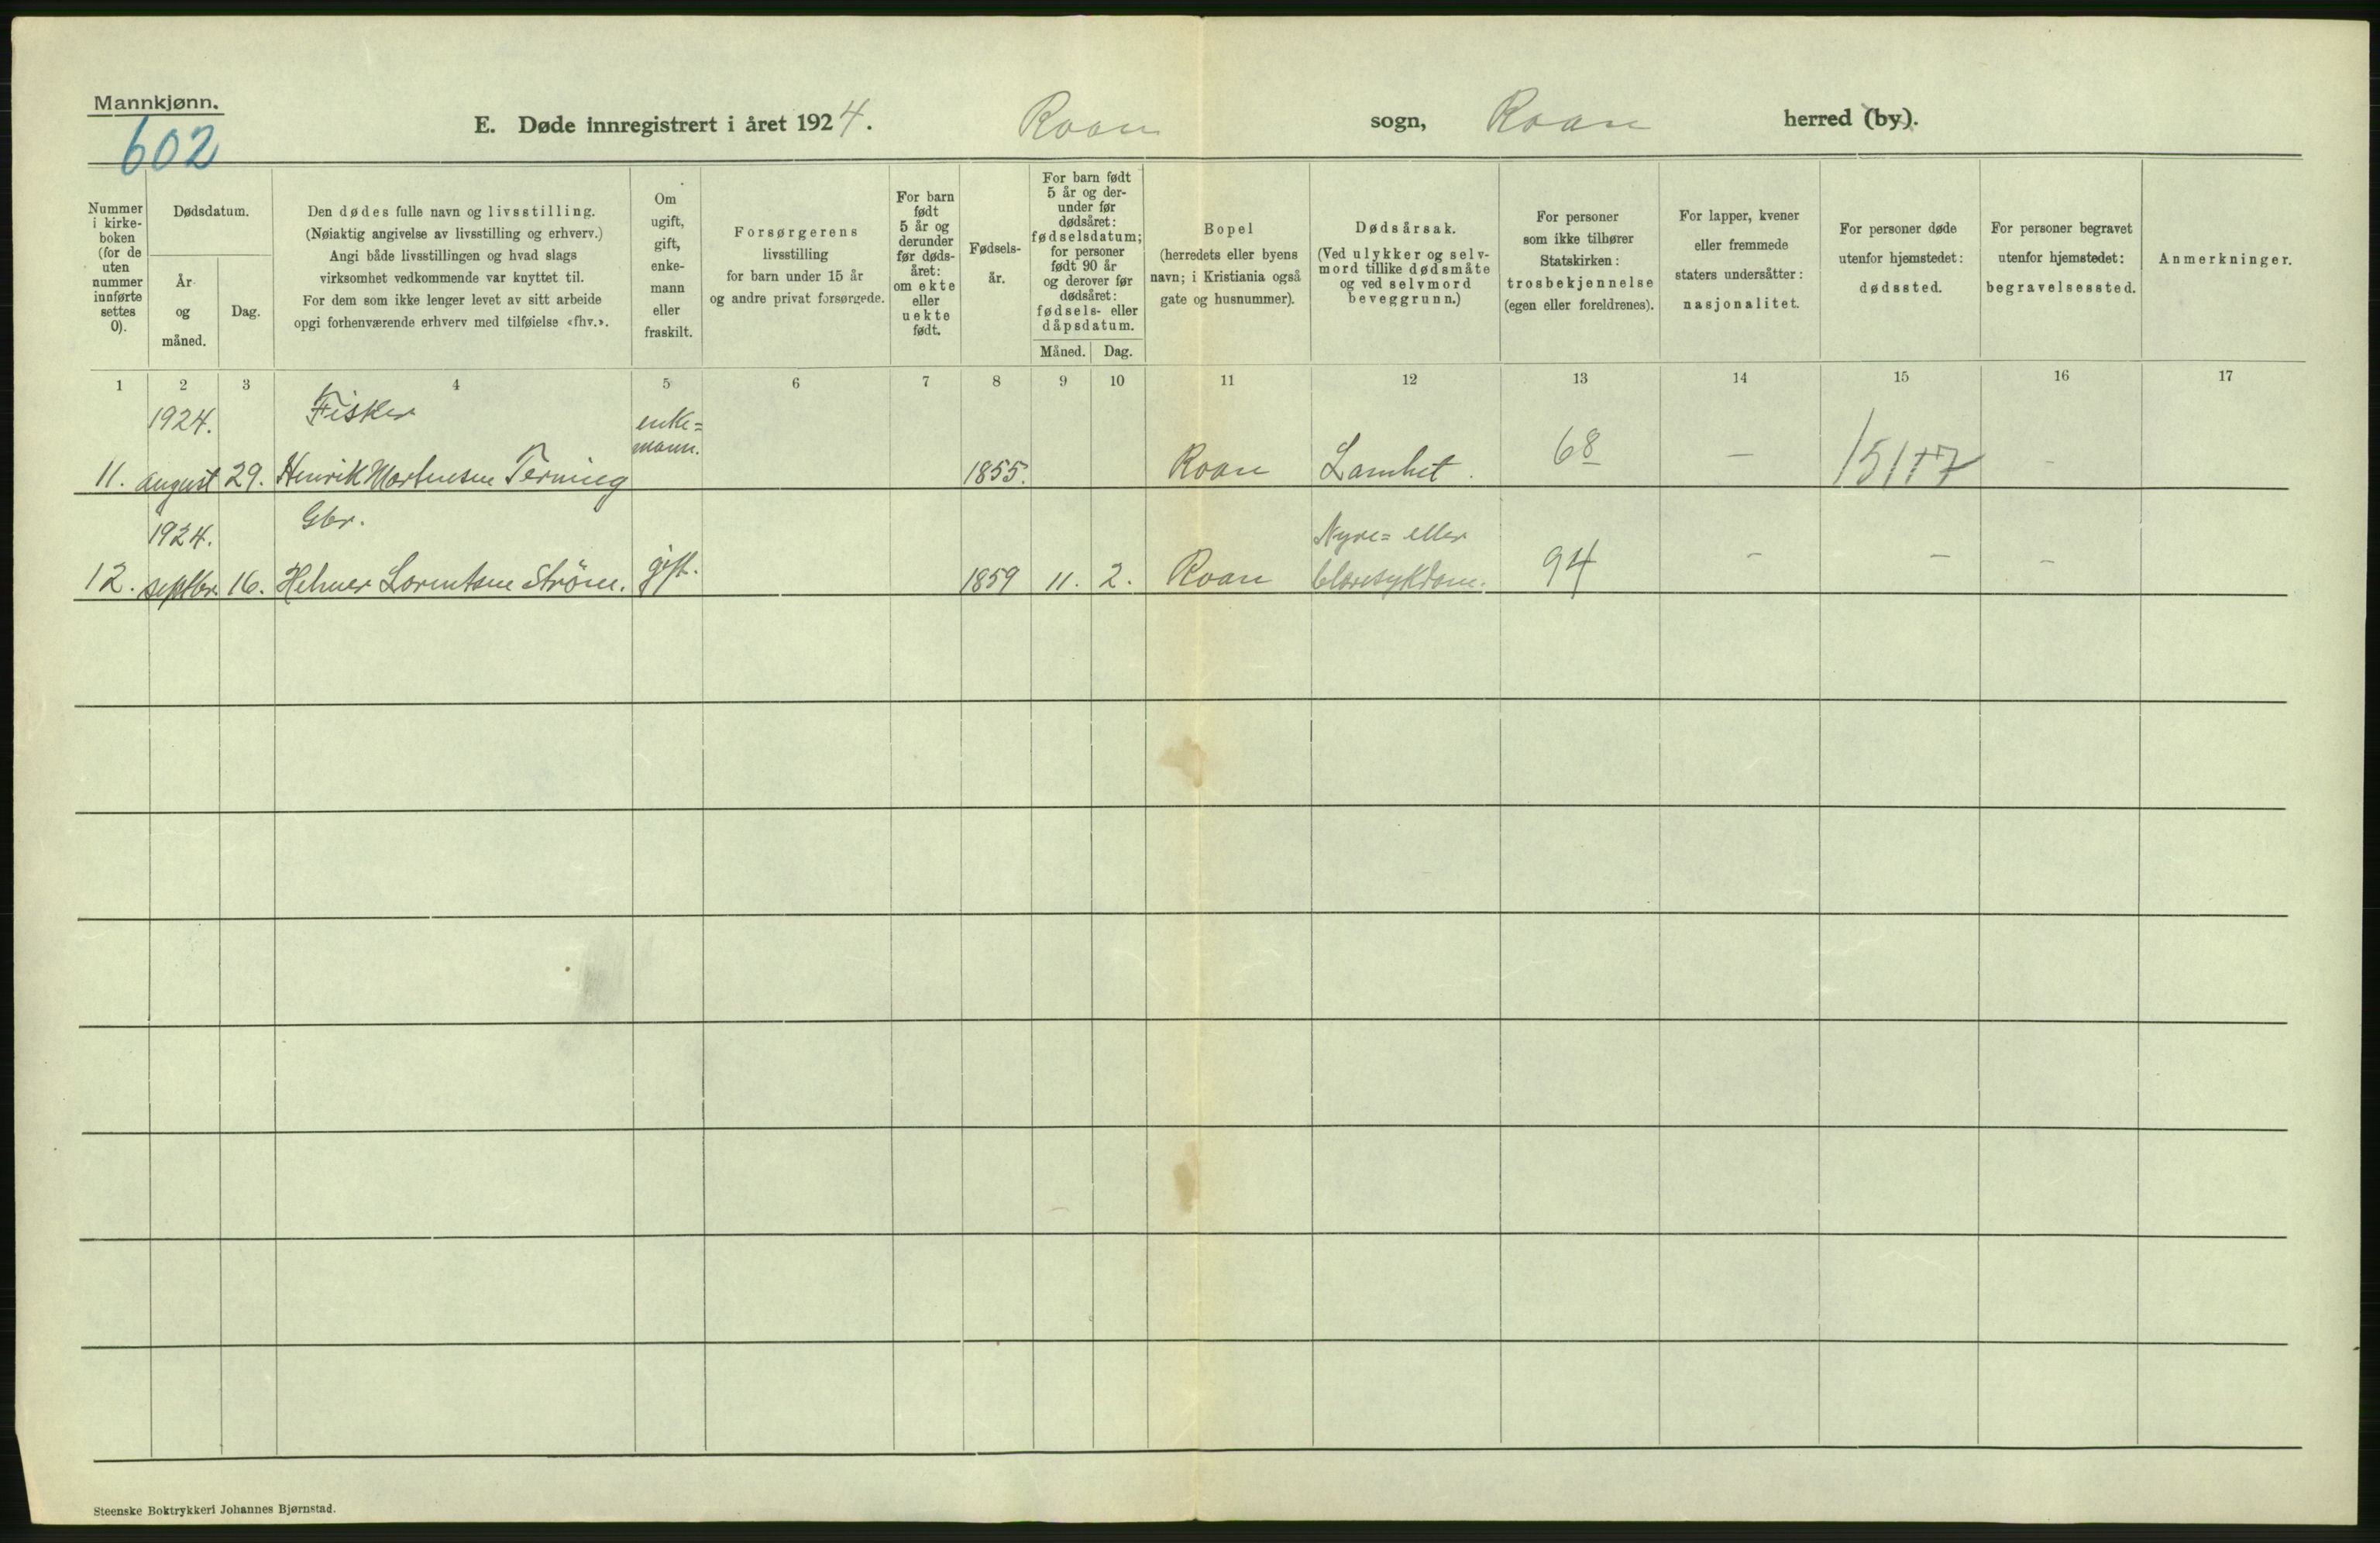 Mannkjønn.
602
E. Døde innregistrert i året 1924. Roan sogn, Roan herred (by).
Nummer
i kirke-
boken
(for de
uten
nummer
innførte
settes
0).
Dødsdatum.
År
og
måned.
Dag.
Den dødes fulle navn og livsstilling.
(Nøiaktig angivelse av livsstilling og erhverv.)
Angi både livsstillingen og hvad slags
virksomhet vedkommende var knyttet til.
For dem som ikke lenger levet av sitt arbeide
opgi forhenværende erhverv med tilføielse «fhv.».
Om
ugift,
gift,
enke-
mann
eller
fraskilt.
Forsørgerens
livsstilling
for barn under 15 år
og andre privat forsørgede.
For barn
født
5 år og
derunder
før døds-
året:
om ekte
eller
uekte
født.
Fødsels-
år.
For barn født
5 år og der-
under før
dødsåret:
fødselsdatum;
for personer
født 90 år
og derover før
dødsåret:
fødsels- eller
dåpsdatum.
Måned. Dag.
Bopel
(herredets eller byens
navn; i Kristiania også
gate og husnummer).
Dødsårsak.
(Ved ulykker og selv-
mord tillike dødsmåte
og ved selvmord
beveggrunn.)
For personer
som ikke tilhører
Statskirken:
trosbekjennelse
(egen eller foreldrenes).
For lapper, kvener
eller fremmede
staters undersåtter:
nasjonalitet.
For personer døde
utenfor hjemstedet:
dødssted.
For personer begravet
utenfor hjemstedet:
begravelsessted.
Anmerkninger.
1 2 3 4 5 6 7 8 9 10 11 12 13 14 15 16 17
1924. Fisker enke=
mann.
11. august 29. Henrik Mortensen Terning 1855. Roan Lamhet. 68 — 15117 -
1924. Gbr. Nyre= eller
12. septbr. 16. Helmer Lorentsen Strøm. gift. 1859 11. 2. Roan blæresykdom. 94 - - -
Steenske Boktrykkeri Johannes Bjørnstad.